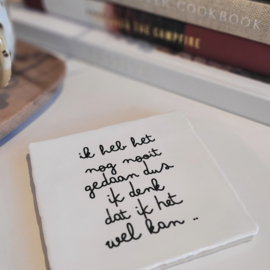 COOKBOOK
THE CAMPFIRE
ik heb het
nog nooit
gedaan dus
ik denk
dat ik het
wel kan ..